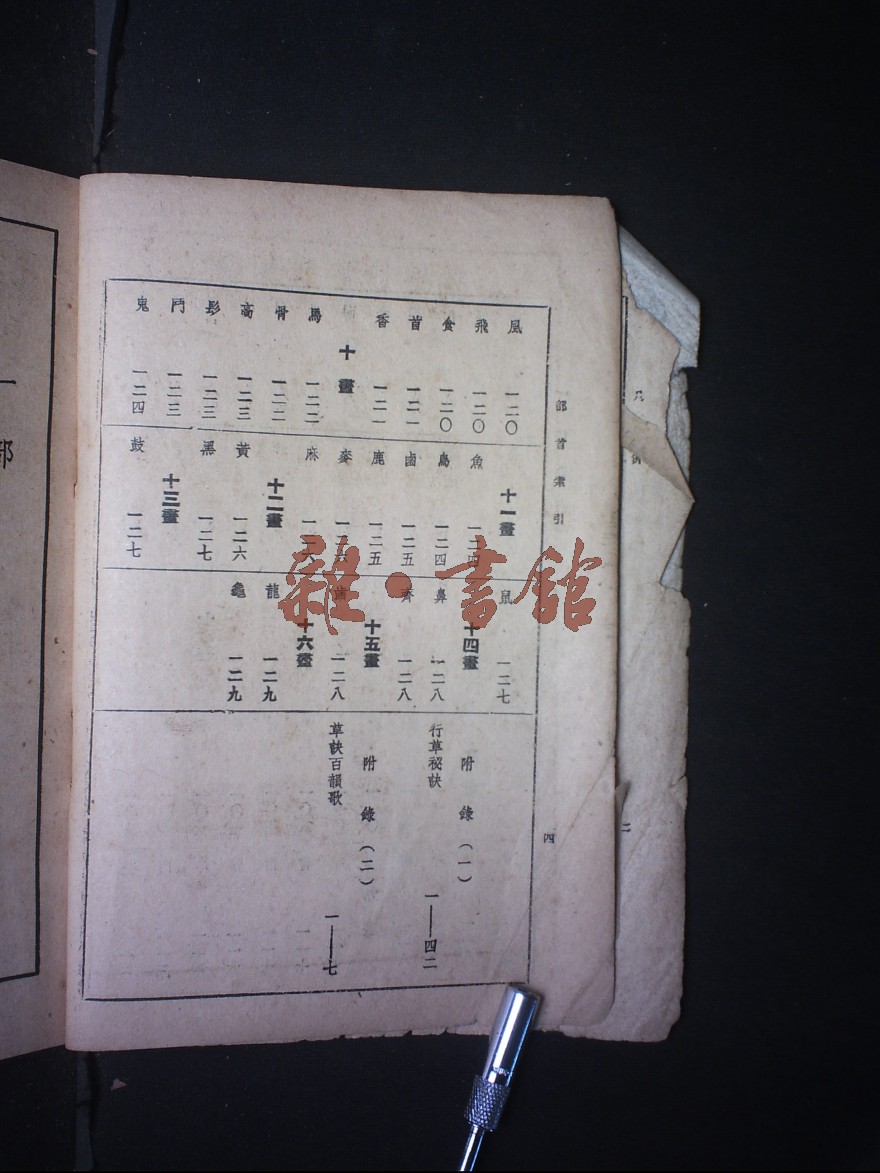 部首索引
四
風 一二〇
飛 一二〇
食 一二〇
首 一二一
香 一二一
十畫
馬 一二二
骨 一二二
高 一二三
髟 一二三
鬥 一二三
鬼 一二四
十一畫
魚 一二四
鳥 一二四
鹵 一二五
鹿 一二五
麥 一二六
麻 一二六
十二畫
黃 一二六
黑 一二七
十三畫
鼓 一二七
鼠 一二七
十四畫
鼻 一二八
齊 一二八
十五畫
齒 一二八
十六畫
龍 一二九
龜 一二九
附錄(一)
行草秘訣 一——四二
附錄(二)
草訣百韻歌 一——七
雜·書館
凡例
二
一
部